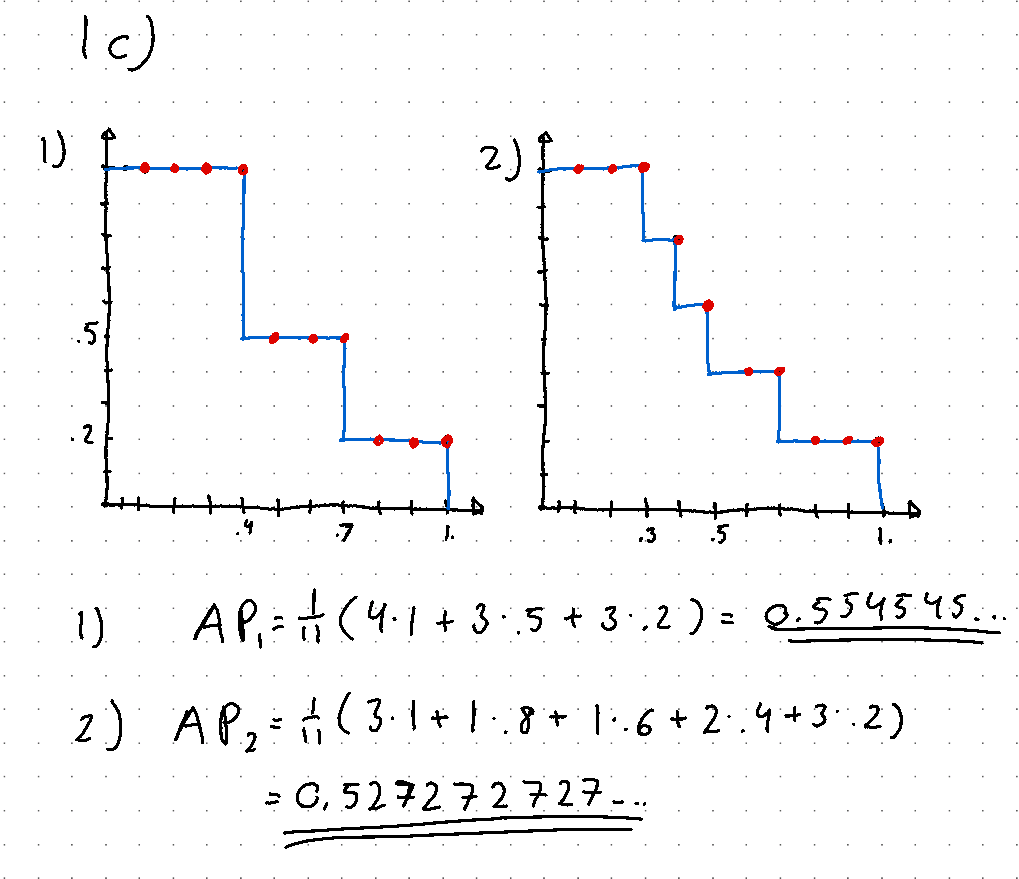 1c)
1)
.5
.2
.4 .7 1.
2)
.3 .5 1.
1) AP₁ = 1/11 (4·1 + 3·.5 + 3·.2) = 0.554545...
2) AP₂ = 1/11 (3·1 + 1·.8 + 1·.6 + 2·.4 + 3·.2)
= 0.527272727...